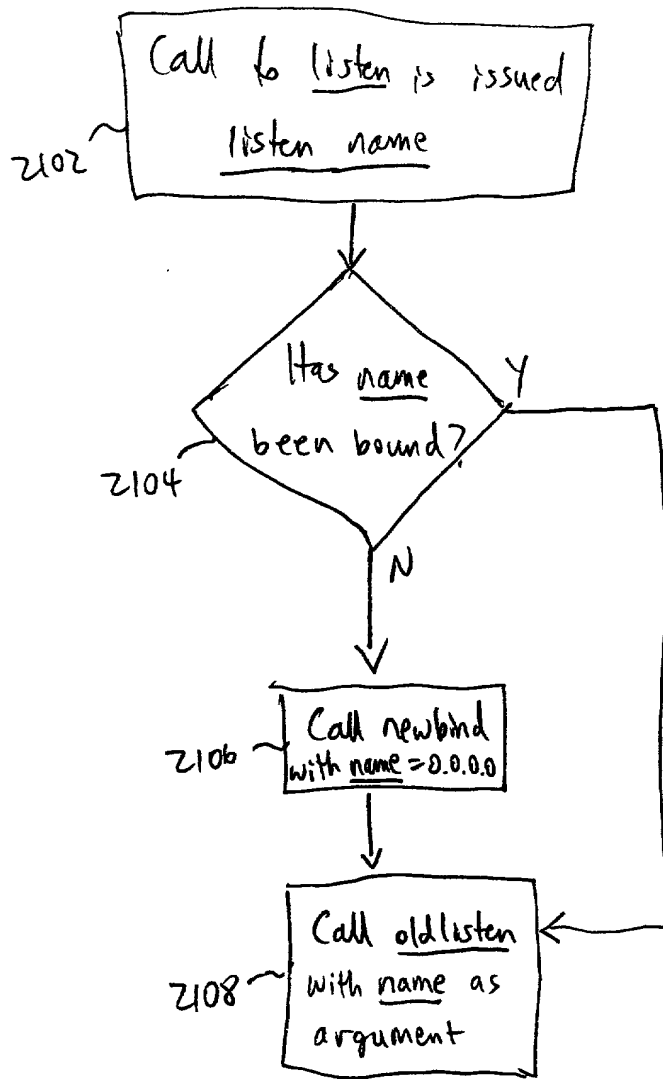 Call to listen is issued
listen name
2102
Has name
Y
been bound?
2104
N
Call newbind
2106
with name = 0.0.0.0
Call oldlisten
2108
with name as
argument